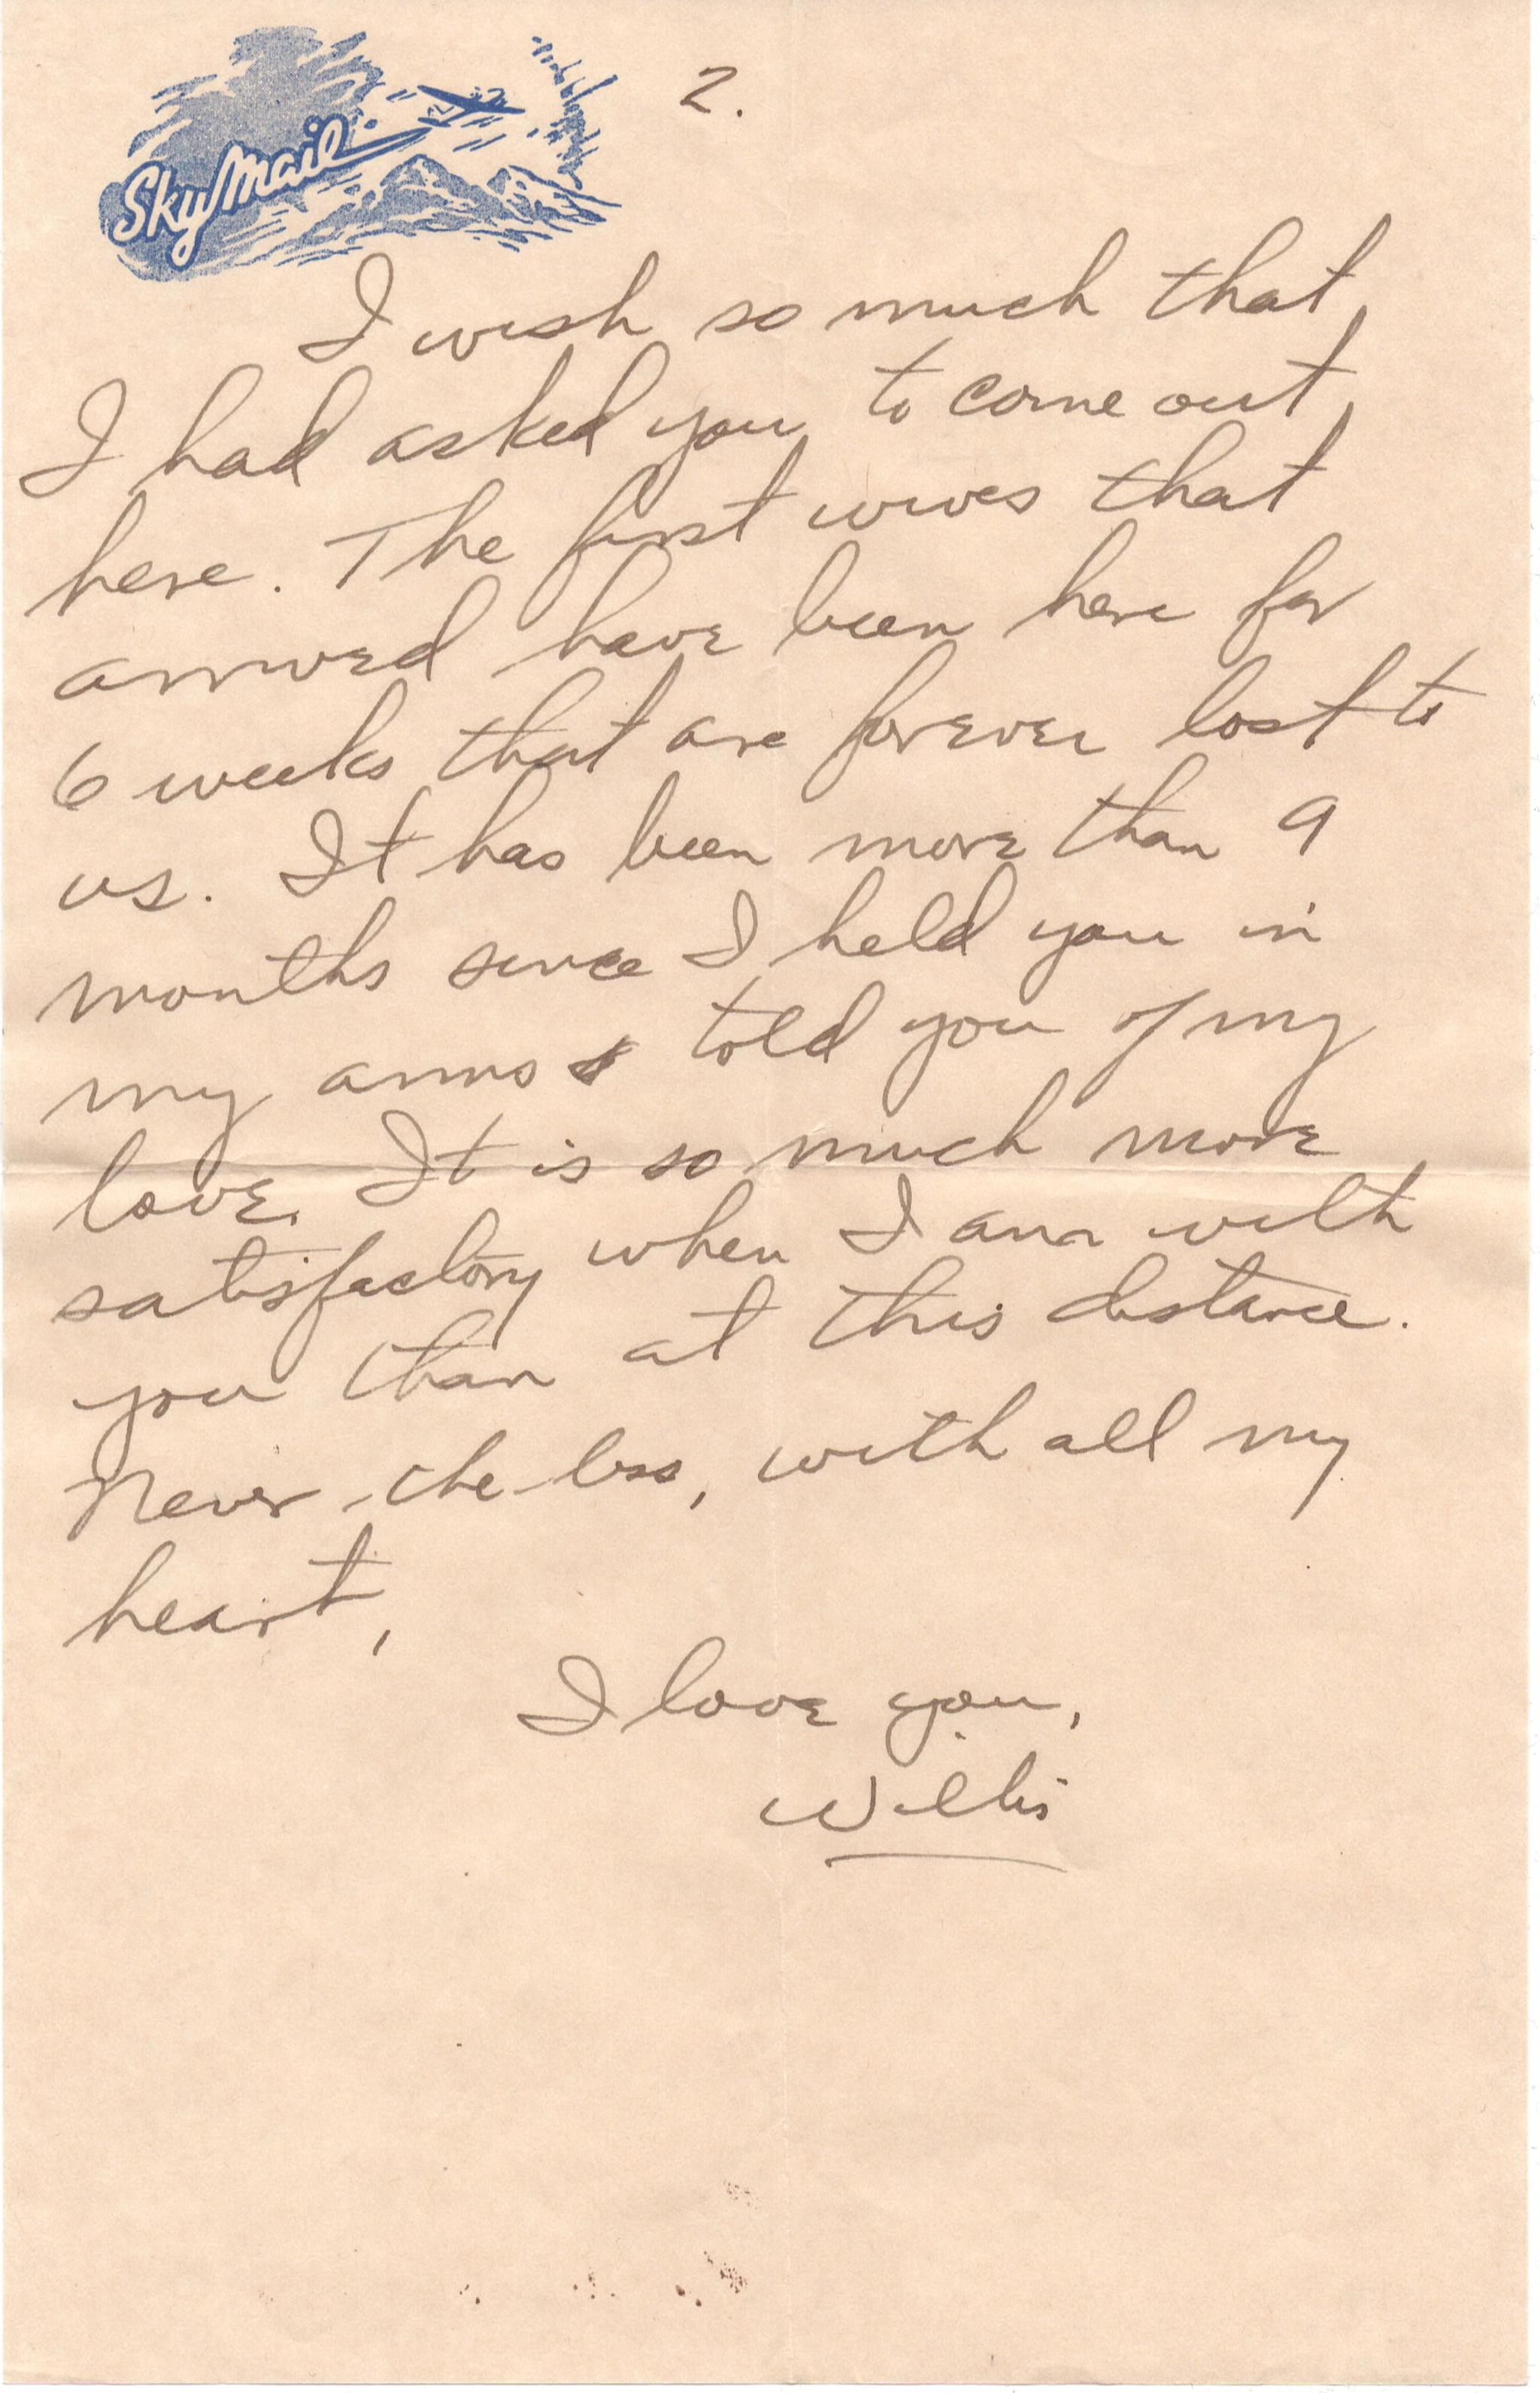 Sky Mail
2.
I wish so much that
I had asked you to come out
here. The first wives that
arrived have been here for
6 weeks that are forever lost to
us. It has been more than 9
months since I held you in
my arms & told you of my
love. It is so much more
satisfactory when I am with
you than at this distance.
Never-the-less, with all my
heart,
I love you,
Willis